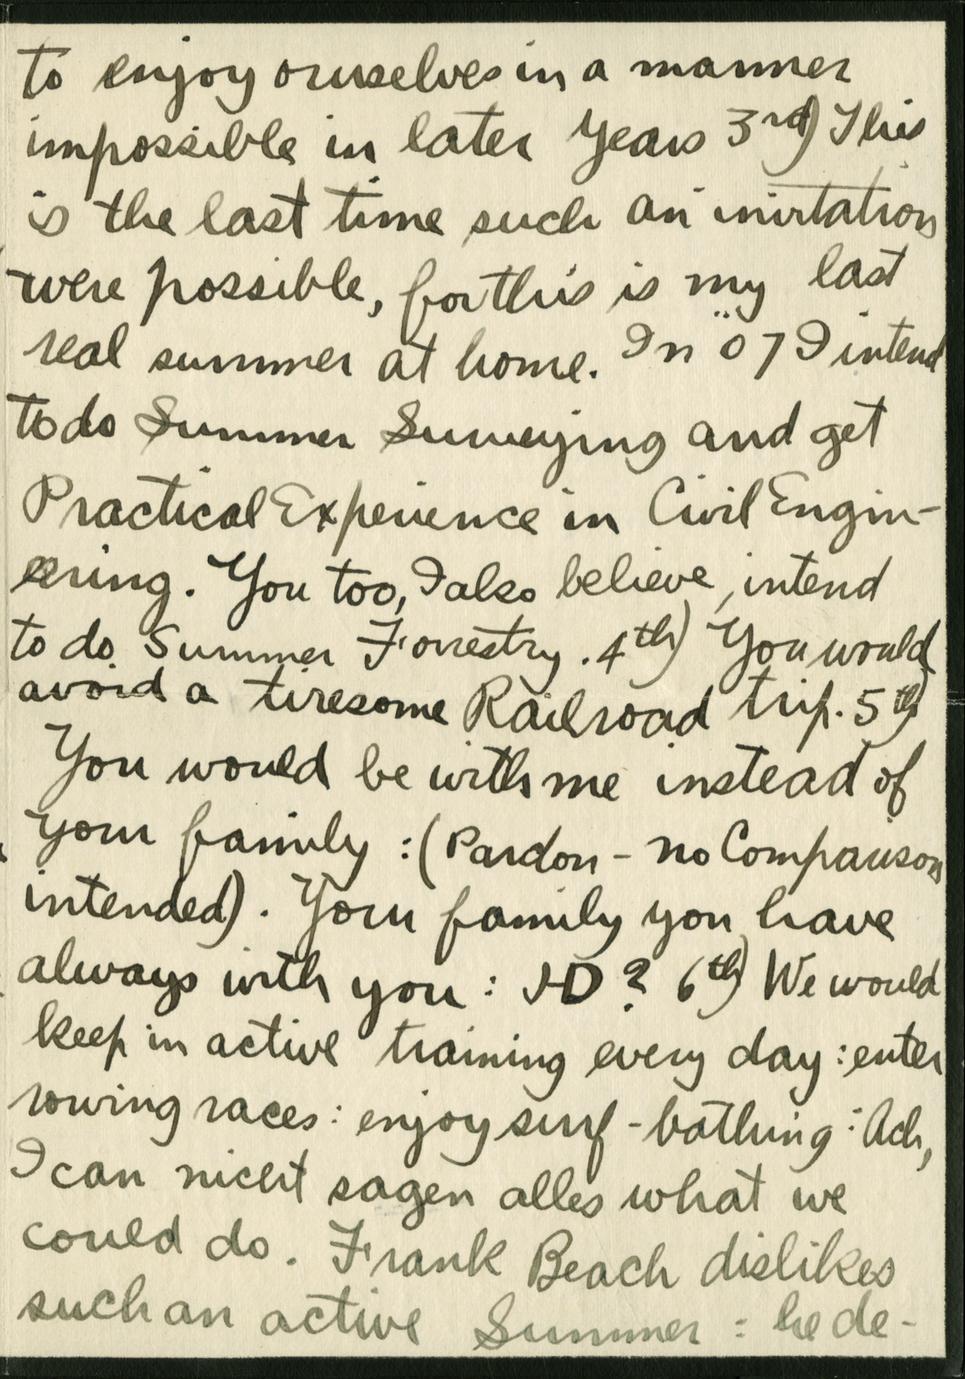 to enjoy ourselves in a manner
impossible in later years 3rd) This
is the last time such an invitation
were possible, for this is my last
real summer at home. In "07 I intend
to do Summer Surveying and get
Practical Experience in Civil Engin-
eering. You too, I also believe, intend
to do Summer Forrestry. 4th) You would
avoid a tiresome Railroad trip. 5th)
You would be with me instead of
your family :(Pardon - no Comparison
intended). Your family you have
always with you : ? 6th) We would
keep in active training every day : enter
rowing races : enjoy surf-bathing : Ach,
I can nicht sagen alles what we
could do. Frank Beach dislikes
such an active Summer : he de-